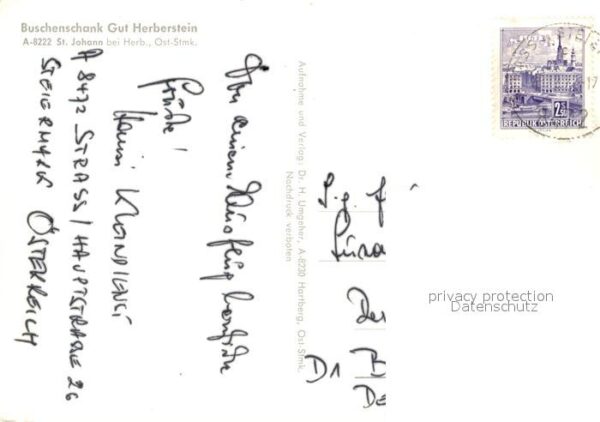 Buschenschank Gut Herberstein
A-8222 St. Johann bei Herb., Ost-Stmk.
Von einem Ausflug herzliche
Grüße!
Hansi
A 8472 STRASS / HAUPTSTRASSE 26
STEIERMARK ÖSTERREICH
Aufnahme und Verlag: Dr. H. Umgeher, A-8230 Hartberg, Ost-Stmk.
Nachdruck verboten
2.50
REPUBLIK ÖSTERREICH
privacy protection
Datenschutz